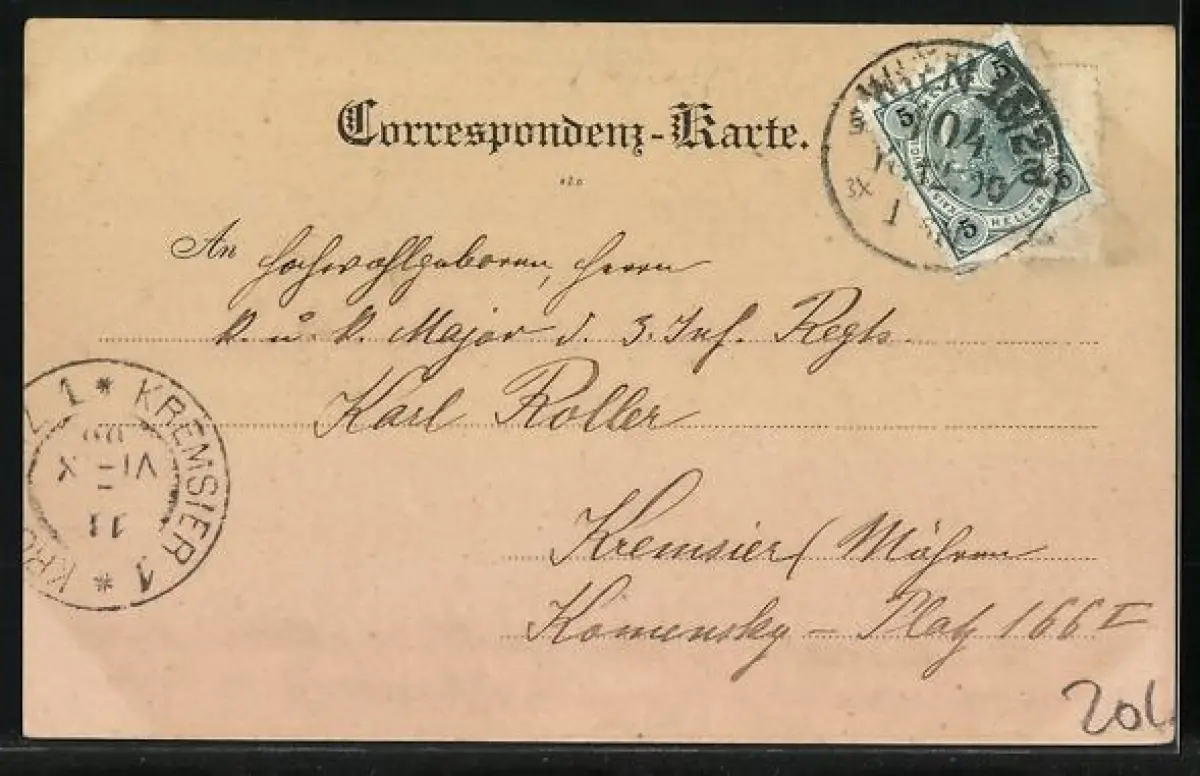 Correspondenz-Karte.
An Hochwohlgeboren, Herrn
k. u. k. Major d. 3. Inf. Regts.
Karl Roller
Kremsier (Mähren
Komensky – Platz 166 I
WIEN
5 5 5 5
HELLER
1 * KREMSIER 1 *
11
201